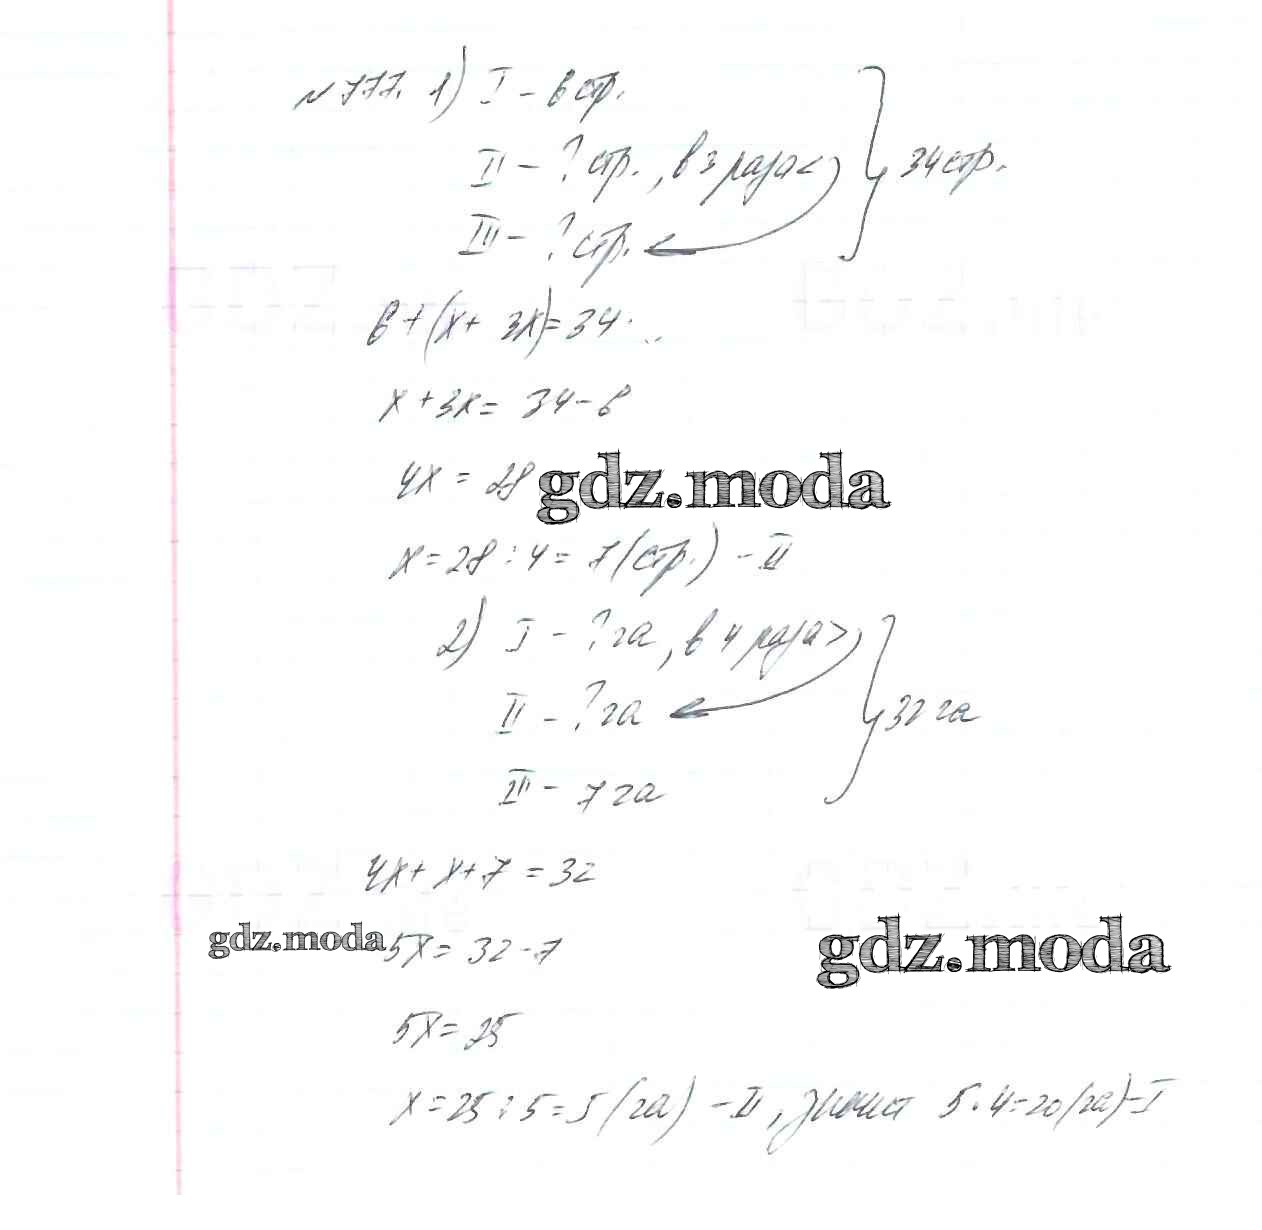 № 777. 1) I - 6 стр.
II - ? стр., в 3 раза <
34 стр.
III - ? стр.
6 + (x + 3x) = 34
x + 3x = 34 - 6
4x = 28
gdz.moda
x = 28 : 4 = 7 (стр.) - II
2) I - ? га, в 4 раза >
II - ? га
32 га
III - 7 га
4x + x + 7 = 32
gdz.moda
5x = 32 - 7
gdz.moda
5x = 25
x = 25 : 5 = 5 (га) - II, значит 5 · 4 = 20 (га) - I